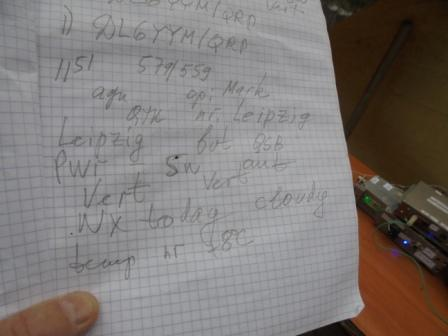 1) DL6YYM/QRP
1151 579/559
agn op: Mark
QTH nr. Leipzig
Leipzig but QSB
PWr 5w ant
Vert Vert
WX today cloudy
temp nr +8C